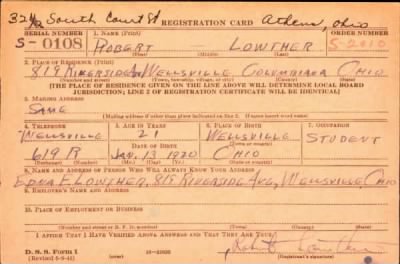 32½ South Court St REGISTRATION CARD Athens, Ohio
SERIAL NUMBER 1. NAME (Print) ORDER NUMBER
S-0108 ROBERT LOWTHER S-2010
2. PLACE OF RESIDENCE (Print)
819 RIVERSIDE AV WELLSVILLE COLUMBIANA OHIO
[THE PLACE OF RESIDENCE GIVEN ON THE LINE ABOVE WILL DETERMINE LOCAL BOARD
JURISDICTION; LINE 2 OF REGISTRATION CERTIFICATE WILL BE IDENTICAL]
3. MAILING ADDRESS
SAME
[Mailing address if other than place indicated on line 2. If same insert word same]
4. TELEPHONE 5. AGE IN YEARS 6. PLACE OF BIRTH 7. OCCUPATION
WELLSVILLE 21 WELLSVILLE STUDENT
DATE OF BIRTH
619 R JAN. 13 1920 OHIO
8. NAME AND ADDRESS OF PERSON WHO WILL ALWAYS KNOW YOUR ADDRESS
EDNA E LOWTHER, 819 RIVERSIDE AVE, WELLSVILLE OHIO
9. EMPLOYER'S NAME AND ADDRESS
10. PLACE OF EMPLOYMENT OR BUSINESS
(Number and street or R. F. D. number) (Town) (County) (State)
I AFFIRM THAT I HAVE VERIFIED ABOVE ANSWERS AND THAT THEY ARE TRUE.
Robert Lowther
D. S. S. Form 1
(Revised 6-9-41) (over) (Registrant's signature)